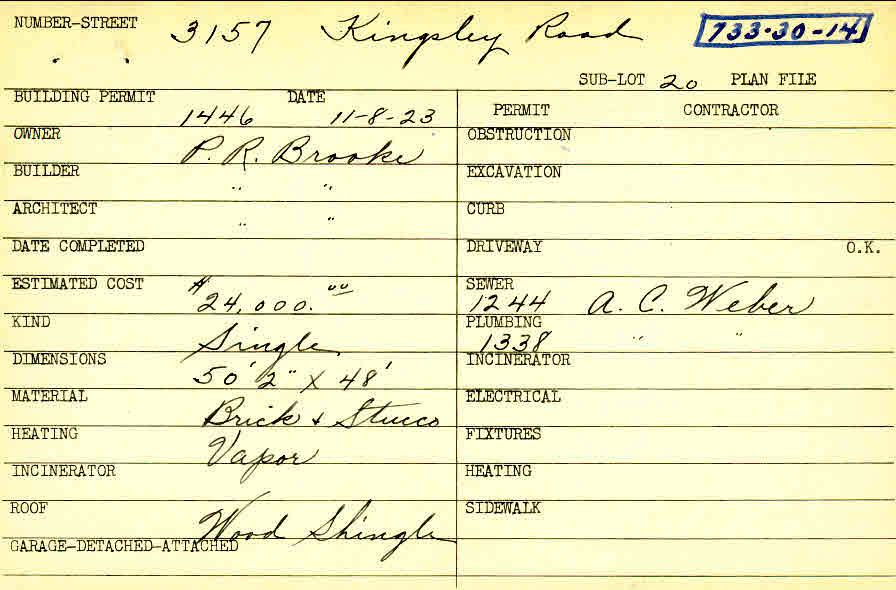 NUMBER-STREET 3157 Kingsley Road 733-30-14
" "
SUB-LOT 20 PLAN FILE
BUILDING PERMIT 1446 DATE 11-8-23
OWNER P. R. Brooke
BUILDER " "
ARCHITECT " "
DATE COMPLETED
ESTIMATED COST $24,000.00
KIND Single
DIMENSIONS 50' 2" X 48'
MATERIAL Brick + Stucco
HEATING Vapor
INCINERATOR
ROOF Wood Shingle
GARAGE-DETACHED-ATTACHED
PERMIT CONTRACTOR
OBSTRUCTION
EXCAVATION
CURB
DRIVEWAY O.K.
SEWER 1244 A. C. Weber
PLUMBING 1338 " "
INCINERATOR
ELECTRICAL
FIXTURES
HEATING
SIDEWALK